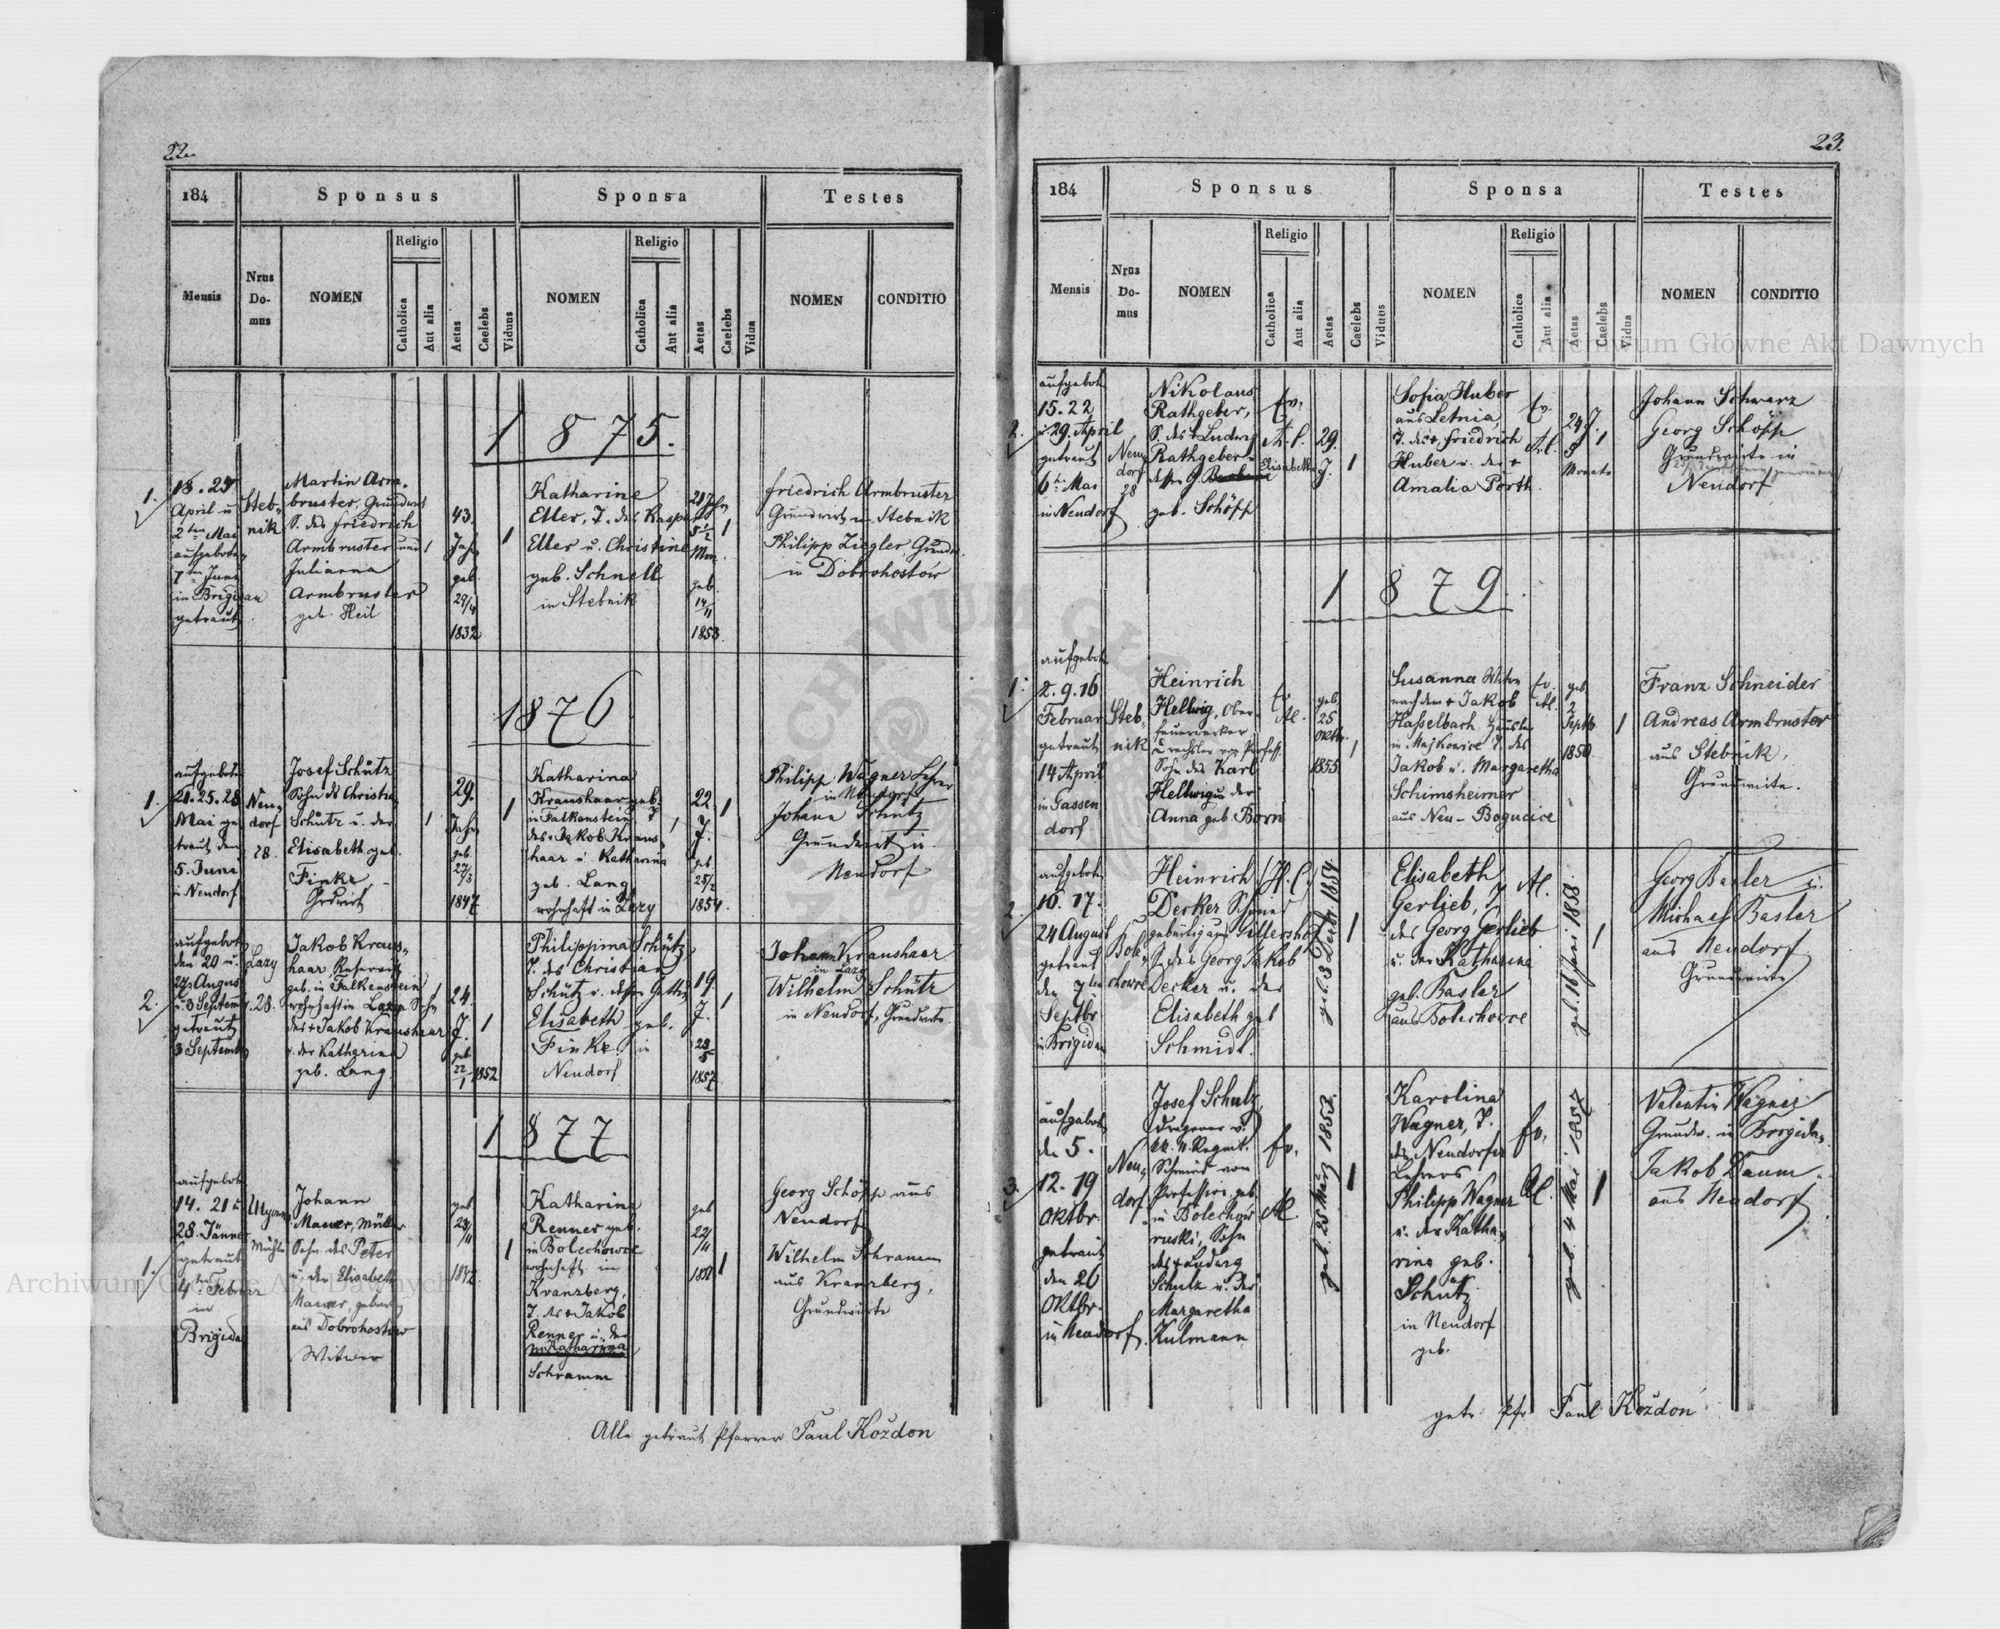 22.
184
Sponsus
Sponsa
Testes
Mensis
Nrus Do- mus
NOMEN
Religio
Catholica
Aut alia
Aetas
Caelebs
Viduus
NOMEN
Religio
Catholica
Aut alia
Aetas
Caelebs
Vidua
NOMEN
CONDITIO
1875.
1.
18. 25
April u
2ten Mai
aufgeboten
7ten Juni
in Brigidau
getraut
Steb-
nik
Martin Arm-
bruster, Grundwirt
S. des Friedrich
Armbruster und
Julianna
Armbruster
geb. Heil
43.
Jahr
geb.
29/4
1832
Katharine
Eller, T. des Kaspar
Eller u. Christine
geb. Schnell
in Stebnik
21 Jhr
5 1/2
Mon.
geb.
14/11
1853
Friedrich Armbruster
Grundwirt in Stebnik
Philipp Ziegler, Grundw.
in Dobrohostów
1876
1.
aufgeboten
21. 25. 28
Mai ge-
traut den
5. Juni
in Neudorf
Neu-
dorf
28.
Josef Schütz
Sohn des Christian
Schütz u. der
Elisabeth geb.
Finke
Grdwirt
29.
Jahr
geb.
27/3
1847
Katharina
Kraushaar geb.
in Falkenstein, T
des + Jakob Kraus-
haar u. Katharina
geb. Lang
wohnhaft in Lazy
22
J.
geb
25/2
1854.
Philipp Wagner Lehrer
in Neudorf
Johann Schütz
Grundwirt in
Neudorf
2.
aufgebot
den 20 u.
27 August
u. 3 Septemb
getraut
3 Septemb
Lazy
28.
Jakob Kraus-
haar Reservist
geb. in Falkenstein
wohnhaft in Lazy Sohn
des + Jakob Kraushaar
u. der Katharina
geb. Lang
24.
J.
geb
22/1 1852
Philippina Schütz
T. des Christian
Schütz u. dessen Gattin
Elisabeth geb.
Finke in
Neudorf
19.
J.
23/5
1857.
Johann Kraushaar
in Lazy
Wilhelm Schütz
in Neudorf, Grundwirte
1877
1.
aufgebot
14. 21 u
28. Jänner
getraut
4ten Februar
in
Brigidau
Mühle
Johann
Mauer, Müller
Sohn des Peter
u. der Elisabeth
Mauer, gebürtig
aus Dobrohostów
Witwer
geb.
23/11
1842
Katharina
Renner geb.
in Bolechowce
wohnhaft in
Kranzberg,
T. des + Jakob
Renner u. der
Katharina
Schramm
geb
22/11
1851
Georg Schöpp aus
Neudorf
Wilhelm Schramm
aus Kranzberg,
Grundwirte
Alle getraut Pfarrer Paul Kozdon
23.
184
Sponsus
Sponsa
Testes
Mensis
Nrus Do- mus
NOMEN
Religio
Catholica
Aut alia
Aetas
Caelebs
Viduus
NOMEN
Religio
Catholica
Aut alia
Aetas
Caelebs
Vidua
NOMEN
CONDITIO
2.
aufgebot
15. 22
u 29. April
getraut
6ten Mai
in Neudorf
Neu-
dorf
28
Nikolaus
Rathgeber,
S. des + Ludwig
Rathgeber u
Elisabetha
geb. Schöpp
Ev.
A. C.
29.
J.
Sofia Huber
aus Letnia,
T. des + Friedrich
Huber u. der +
Amalia Porth.
Ev.
24 J.
5
Monate
Johann Schwarz
Georg Schöpp
Grundwirte in
Neudorf
1879.
1.
aufgebot
2. 9. 16
Februar
getraut
14 April
in Gassen
dorf
Steb-
nik
Heinrich
Hellwig, Ober-
feuerwerker
Drechsler von Profess.
Sohn des Karl
Hellwig u der
Anna geb Born
Ev
geb
25
Oktbr.
1855
Susanna Witwe
nach dem + Jakob
Hasselbach,
in Majkowice T. des
Jakob u. Margaretha
Schimsheimer
aus Neu-Bogucice
Ev.
geb
2
Septb
1850.
Franz Schneider
Andreas Armbruster
aus Stebnik,
Grundwirte.
2.
aufgebot
10. 17.
24 August
getraut
den 7ten
Septbr
in Brigidau
Bole-
chowce
Heinrich
Decker Schmied
gebürtig aus Sillershof
S. des Georg Jakob
Decker u. der
Elisabeth geb
Schmidt.
H. C.
Elisabeth
Gerlieb, T
des Georg Gerlieb
u. der Katharina
geb. Basler
aus Bolechowce
geb. 16 Juni 1858.
Georg Basler u.
Michael Basler
aus Neudorf
Grundwirte
3.
aufgebot
den 5.
12. 19
Oktbr.
getraut
den 26
Oktbr.
in Neudorf.
Neu-
dorf
Josef Schulz
Dragoner v.
Schmied von
Profession, geb.
in Bolechów
ruski, Sohn
des + Ludwig
Schulz u. der
Margaretha
Kulmann
Ev.
geb. 25 März 1853.
Karolina
Wagner, T.
des Neudorfer
Lehrers
Philipp Wagner
u. der Katha-
rina geb.
Schütz
in Neudorf
geb.
Ev.
geb. 4 Mai 1857
Valentin Wagner
Grundw. in Brigidau,
Jakob Daum
aus Neudorf
getr. Pfr Paul Kozdon
Archiwum Główne Akt Dawnych
Archiwum Główne Akt Dawnych